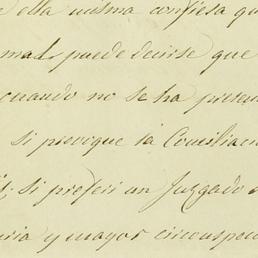 ella misma confiesa qu
mal puede decirse que
cuando no se ha presen
si provoque la Concilia
si preferi un Juzgado
y mayor circunspec